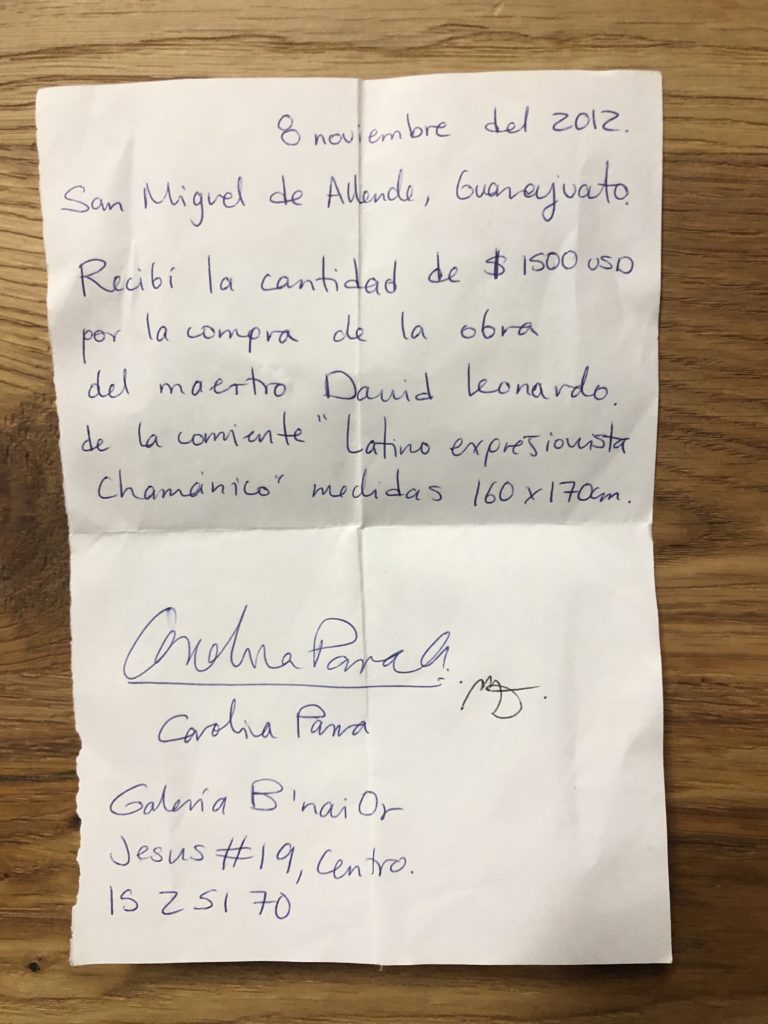 8 noviembre del 2012.
San Miguel de Allende, Guanajuato.
Recibí la cantidad de $ 1500 USD
por la compra de la obra
del maestro David Leonardo.
de la corriente "Latino expresionista
Chamánico" medidas 160 x 170cm.
Carolina Parra G.
Carolina Parra
Galería B'nai Or
Jesus #19, Centro.
15 2 51 70